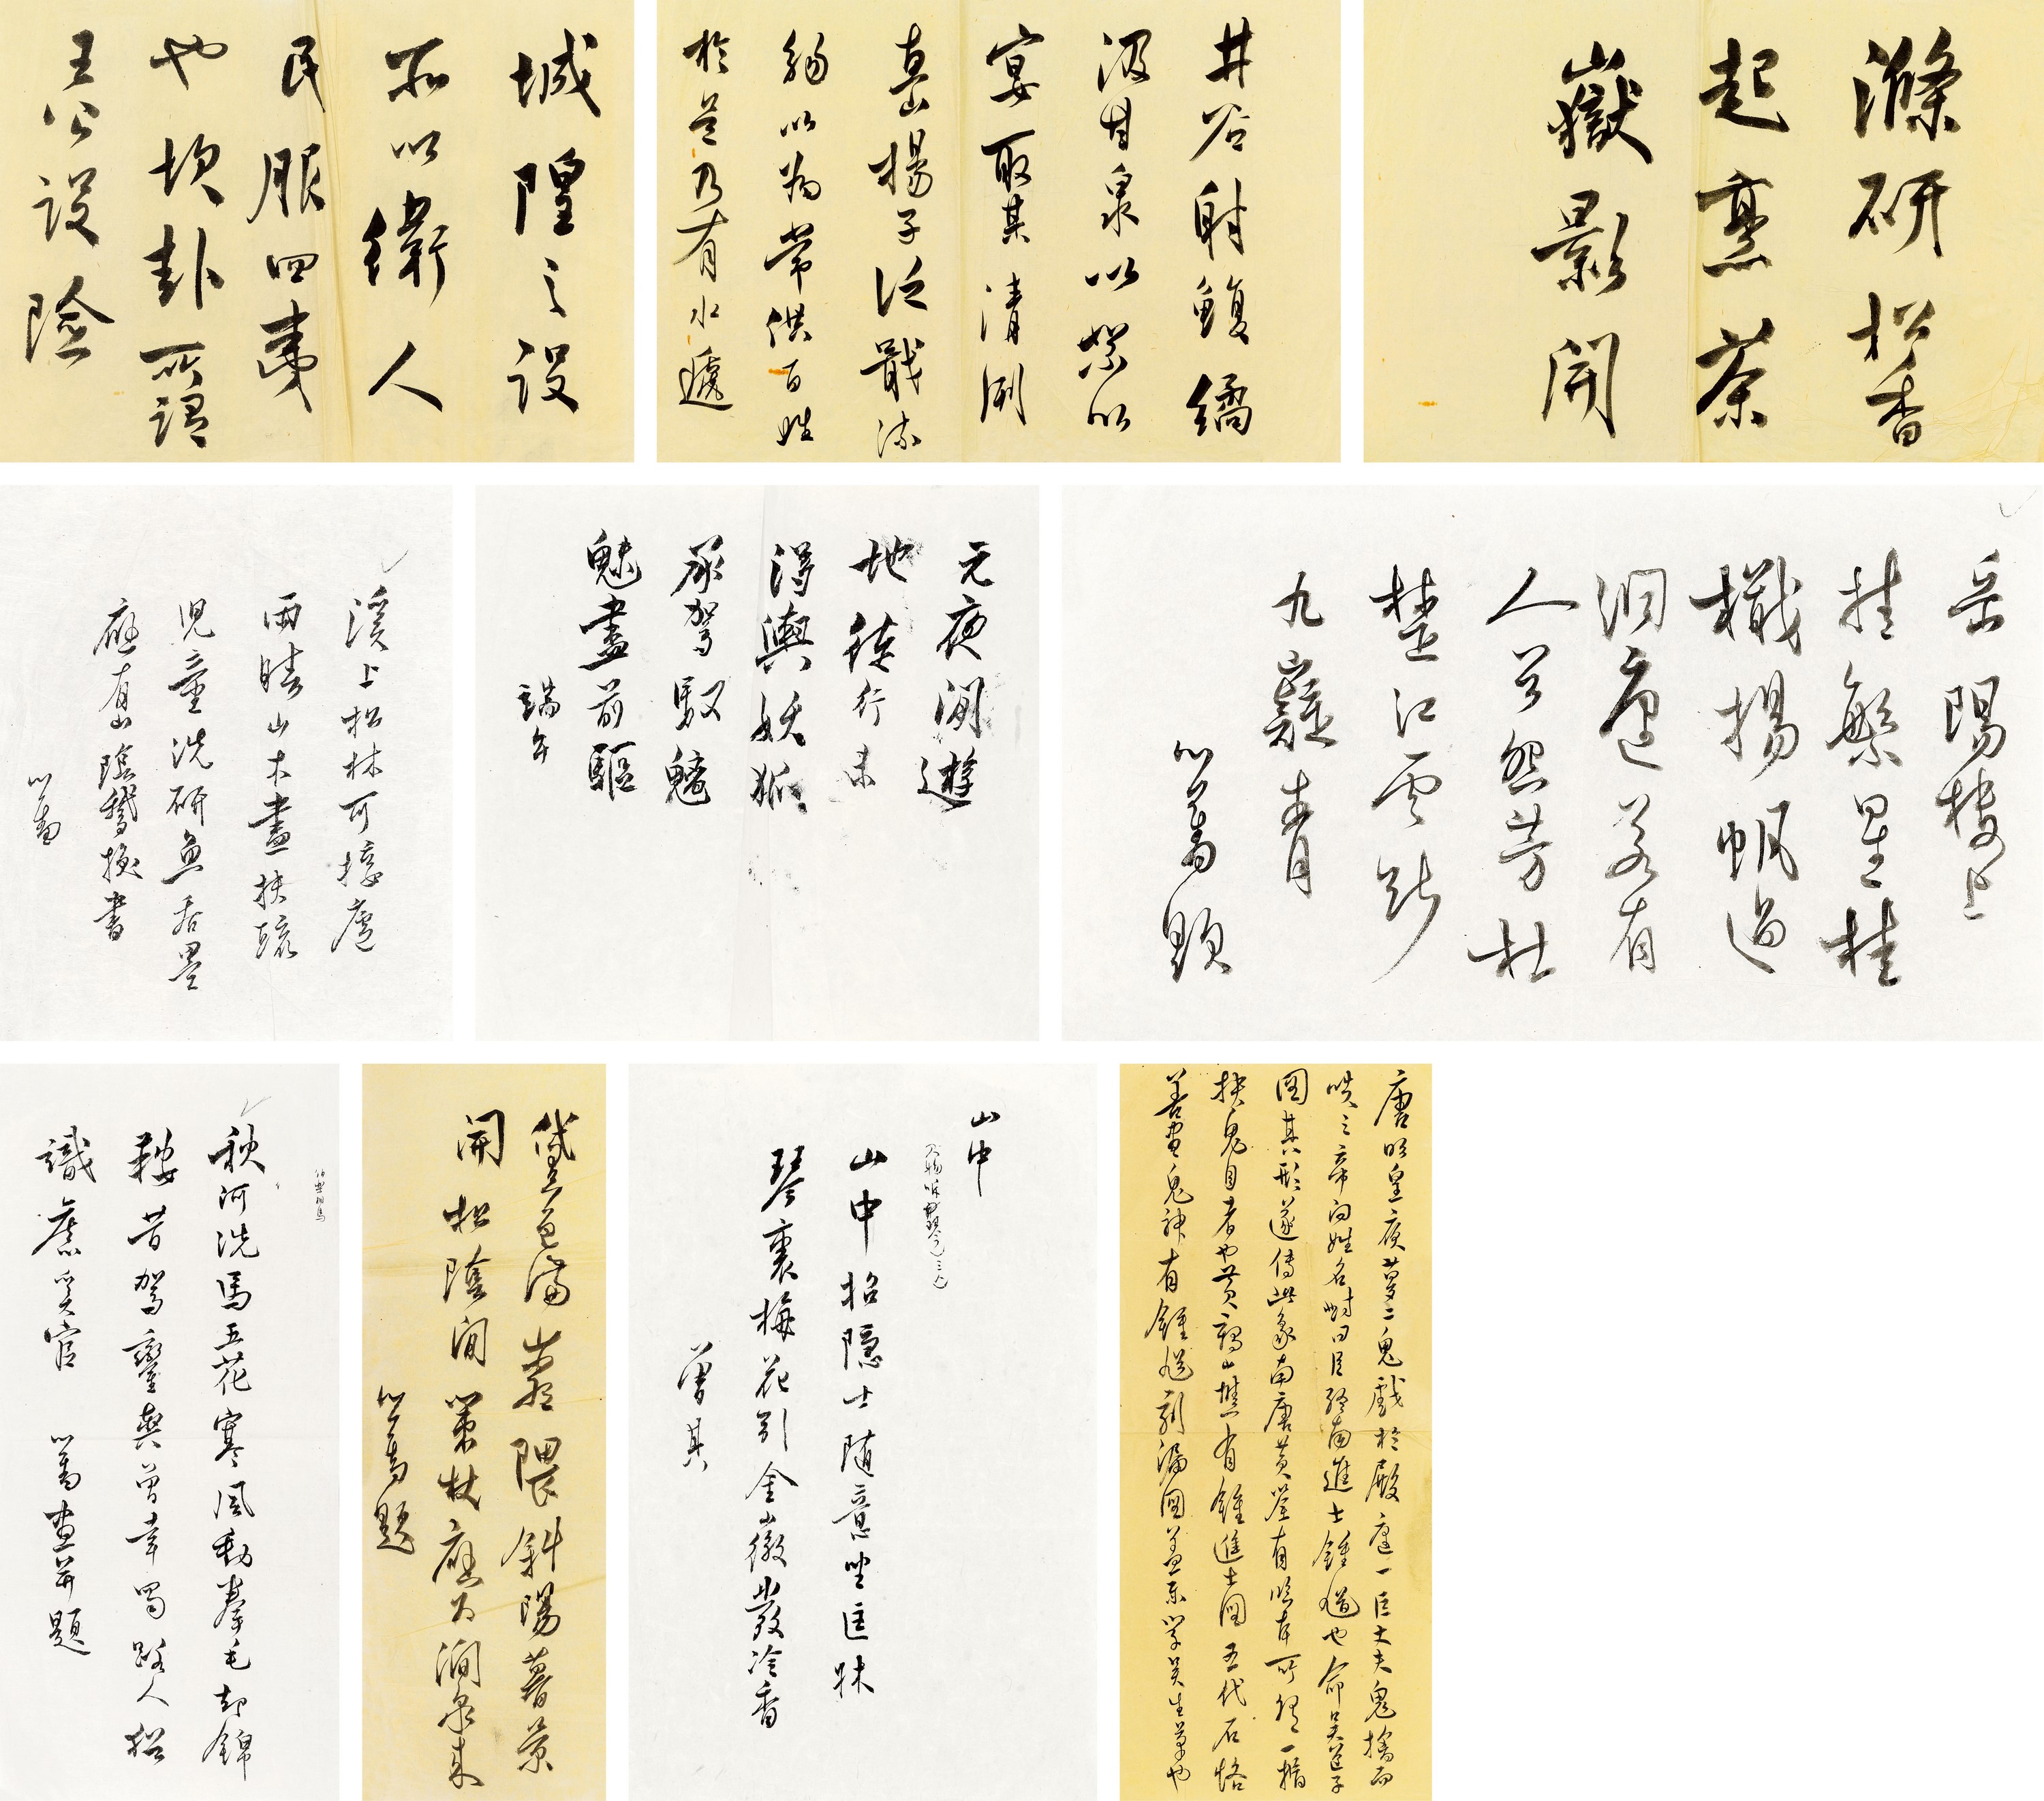 滌研松香
起烹茶
嶽影開
井谷射鮒繘
汲甘泉以祭以
宴取其清洌
揚子泛觥流
觴以為常供百姓
於是乃有水遞
城隍之設
所以衛人
民服四夷
也坎卦所謂
王公設險
岳陽樓上
挂繁星桂
檝揚帆過
洞庭若有
人兮怨芳杜
楚江雲斷
九嶷青
心畬題
元夜閒遊
地徒行未
得輿妖狐
承駕馭魑
魅盡前驅
端午
溪上松林可接廬
雨晴山木盡扶疏
兒童洗研魚吞墨
應有山陰鵝換書
心畬
唐明皇夜夢二鬼戲於殿庭一巨丈夫鬼擒而
啖之帝问姓名對曰臣終南進士鍾馗也命吴道子
圖其形遂傳此象南唐黄筌有臨本所謂一指
抉鬼目者也黄鶴山樵有鍾進士圖五代石恪
善畫鬼神有鍾馗漏圖蓋亦學吴生筆也
山中
山中招隱士随意坐匡牀
琴裏梅花引金徽發冷香
曾其
黛色滿巖隈斜陽暮景
開松陰閒策杖應為澗泉來
心畬題
秋河洗馬五花寒風動拳毛卸錦
鞍昔駕鑾輿曾幸蜀路人猶
識舊奚官 心畬畫并題